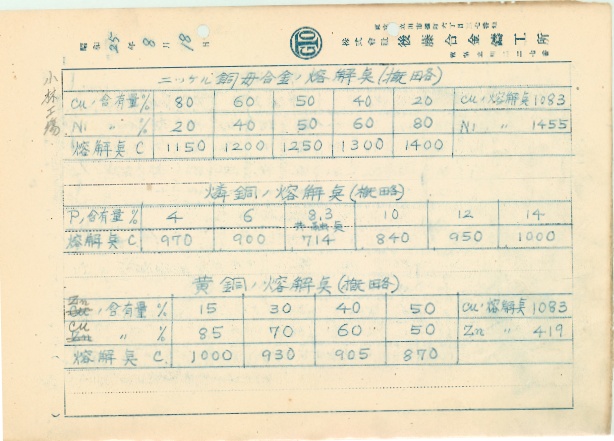 昭和25年8月18日
GTO
株式会社 後藤合金鑄工所
小林工場
ニッケル銅母合金ノ熔解臭(撤略)
Cuノ含有量% 80 60 50 40 20 Cuノ熔解臭1083
Ni 〃 % 20 40 50 60 80 Ni 〃 1455
熔解臭 C 1150 1200 1250 1300 1400
燐銅ノ熔解臭(撤略)
Pノ含有量% 4 6 8.3 10 12 14
熔解臭C. 970 900 714 840 950 1000
黄銅ノ熔解臭(撤略)
Zn
Cuノ含有量 % 15 30 40 50 Cuノ熔解臭1083
Cu
Zn 〃 % 85 70 60 50 Zn 〃 419
熔解臭 C. 1000 930 905 870